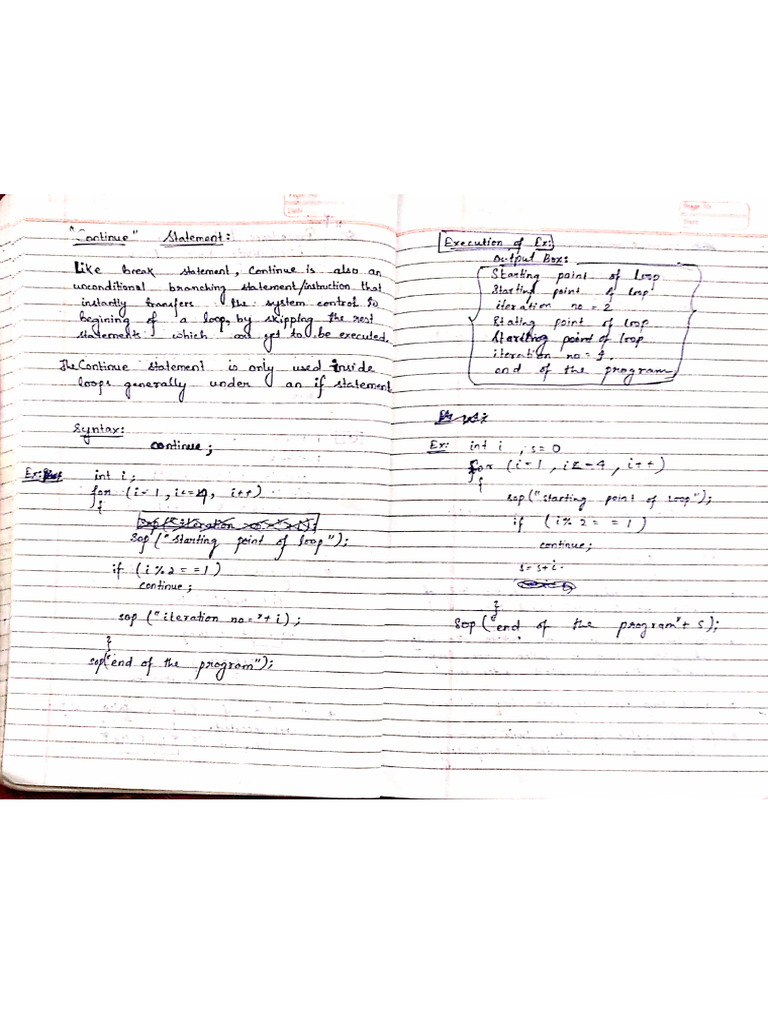 "Continue" Statement:
Like break statement, Continue is also an
unconditional branching statement/instruction that
instantly transfers the system control to
begining of a loop, by skipping the rest
statements which are yet to be executed.
The Continue statement is only used inside
loops generally under an if statement
Syntax:
continue;
Ex:
int i;
for (i=1, i<=4, i++)
{
sop ("starting point of loop");
if (i%2==1)
continue;
sop ("iteration no="+i);
}
sop("end of the program");
Execution of Ex:
Output Box:
Starting point of loop
Starting point of loop
iteration no = 2
Stating point of loop
Starting point of loop
iteration no =
end of the program
Ex: int i, s=0
for (i=1, i<=4, i++)
{
sop("starting point of loop");
if (i%2==1)
continue;
s=s+i.
}
sop("end of the program"+s);